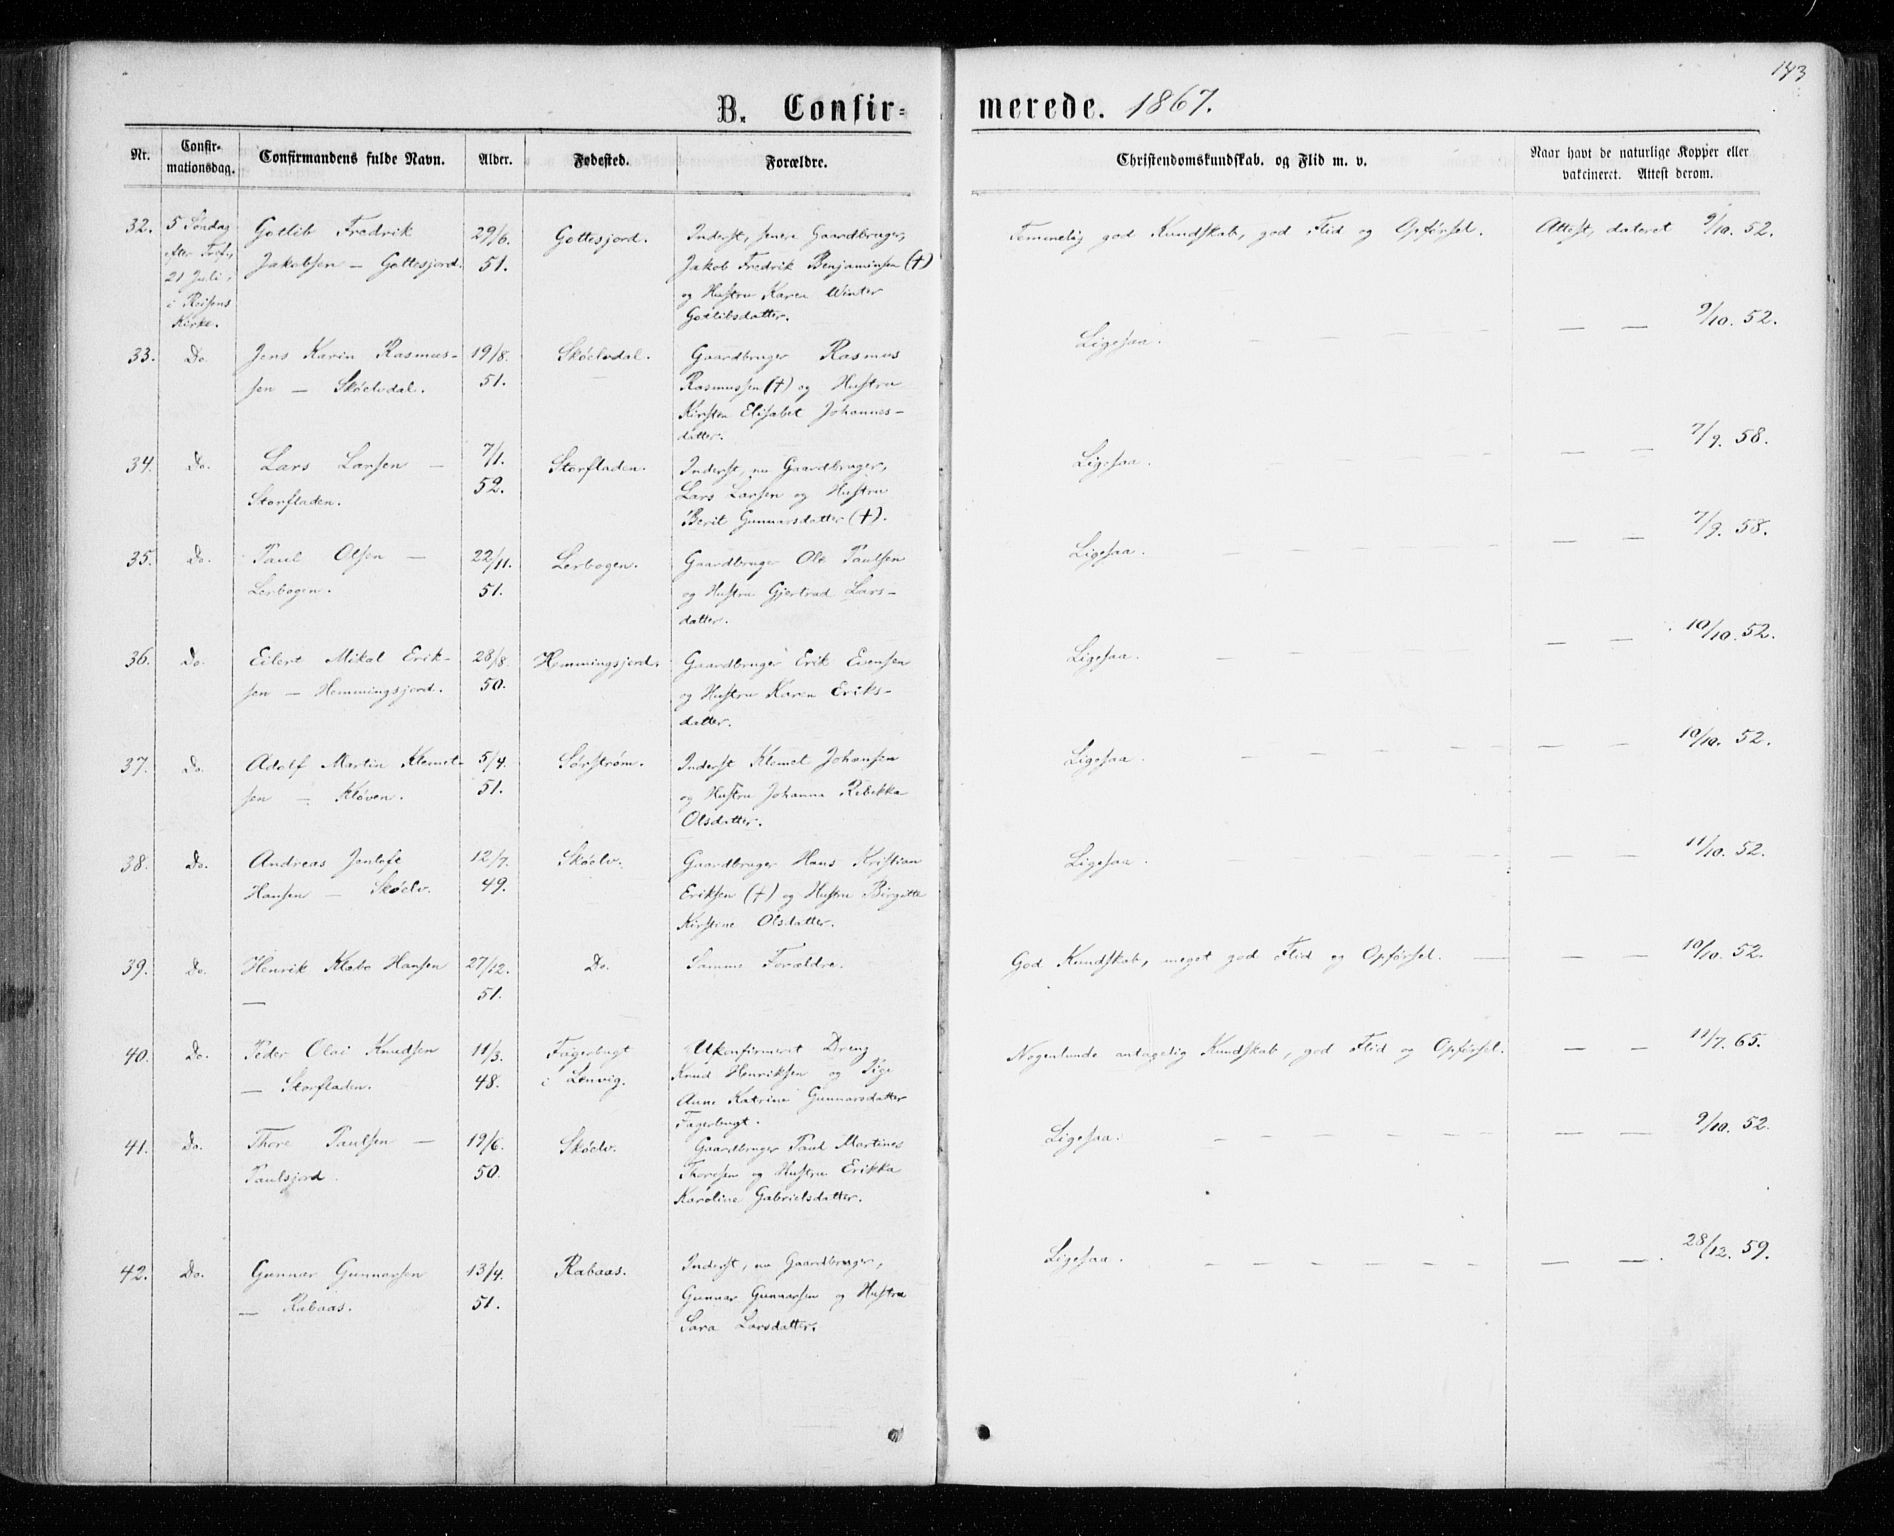 143
B. Confir=
merede. 1867.
Nr.
Confir-
mationsdag.
Confirmandens fulde Navn.
Alder.
Fødested.
Forældre.
Christendomskundskab. og Flid m. v.
Naar havt de naturlige Kopper eller
vakcineret. Attest derom.
32.
5 Søndag
efter Tref.,
21 Juli,
i Reisens
Kirke.
Gotlib Fredrik
Jakobsen — Gottesjord.
29/6.
51.
Gottesjord.
Inderst, senere Gaardbruger,
Jakob Fredrik Benjaminsen (†)
og Hustru Karen Winter
Gotlibsdatter.
Temmelig god Kundskab, god Flid og Opførsel.
Attest, dateret 9/10. 52.
33.
Do.
Jens Karin Rasmus-
sen — Skøelvdal.
19/8.
51.
Skøelvdal.
Gaardbruger Rasmus
Rasmussen (†) og Hustru
Kirsten Elisabet Johannes-
datter.
Ligesaa.
— — 9/10. 52.
34.
Do.
Lars Larsen —
Storfladen.
7/1.
52.
Storfladen.
Inderst, nu Gaardbruger,
Lars Larsen og Hustru
Berit Gunnarsdatter (†).
Ligesaa.
— — 7/9. 58.
35.
Do.
Paul Olsen —
Lerbogen.
22/11.
51.
Lerbogen.
Gaardbruger Ole Paulsen
og Hustru Gjertrud Lars-
datter.
Ligesaa.
— — 7/9. 58.
36.
Do.
Eilert Mikal Erik-
sen — Hemmingsjord.
28/8.
50.
Hemmingsjord.
Gaardbruger Erik Evensen
og Hustru Karen Eriks-
datter.
Ligesaa.
— — 10/10. 52.
37.
Do.
Adolf Martin Klemet-
sen — Kløven.
5/4.
51.
Sørstrøm.
Inderst Klemet Johansen
og Hustru Johanna Rebekka
Olsdatter.
Ligesaa.
— — 10/10. 52.
38.
Do.
Andreas Jentoft
Hansen — Skøelv.
12/7.
49.
Skøelv.
Gaardbruger Hans Kristian
Eriksen (†) og Hustru Birgitte
Kirstine Olsdatter.
Ligesaa.
— — 11/10. 52.
39.
Do.
Henrik Klæbo Hansen
—
27/12.
51.
Do.
Samme Forældre.
God Kundskab, meget god Flid og Opførsel.
— — 10/10. 52.
40.
Do.
Peder Olai Knudsen
— Storfladen.
11/3.
48.
Fagerbugt
i Lenvig.
Ukonfirmeret Dreng
Knud Henriksen og Pige
Anne Katrine Gunnarsdatter
Fagerbugt.
Nogenlunde antagelig Kundskab, god Flid og Opførsel.
— — 11/7. 65.
41.
Do.
Thore Paulsen —
Paulsjord.
19/6.
50.
Skøelv.
Gaardbruger Paul Martines
Thoresen og Hustru Erikka
Karoline Gabrielsdatter.
Ligesaa.
— — 9/10. 52.
42.
Do.
Gunnar Gunnarsen
— Rabaas.
13/4.
51.
Rabaas.
Inderst, nu Gaardbruger,
Gunnar Gunnarsen og Hustru
Sara Larsdatter.
Ligesaa.
— — 28/12. 59.